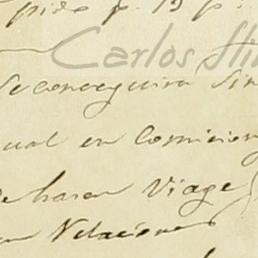 pido p. 19 p.
Carlos
Se conseguira sin
ual en Comicion
de haran Viage
Relacione